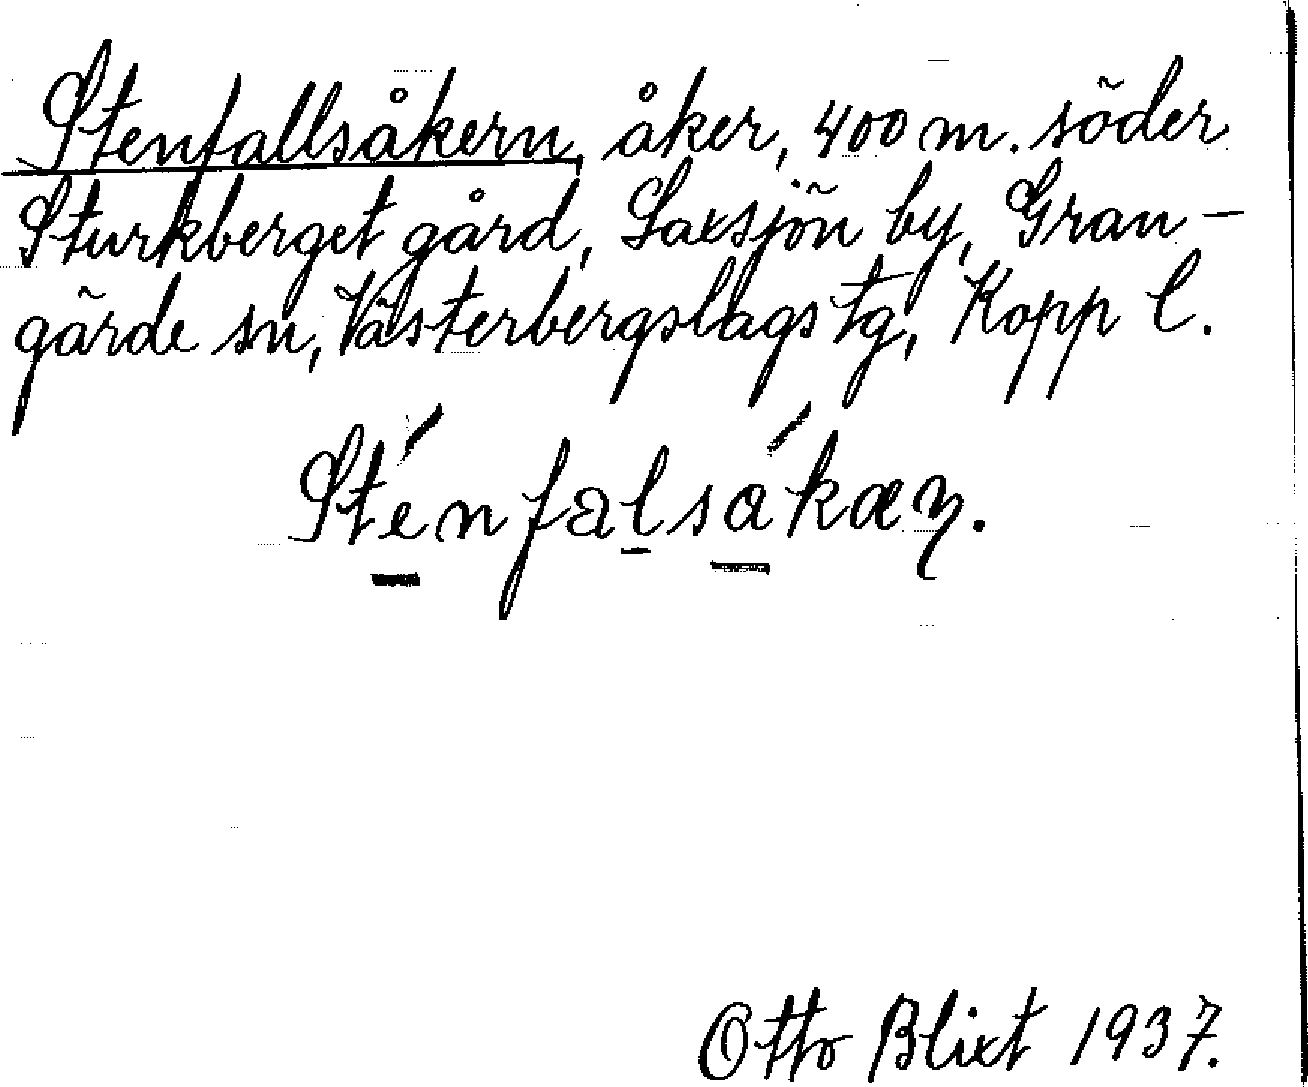 Stenfallsåkern, åker, 400 m. söder
Sturkberget gård, Saxsjön by, Gran-
gärde sn, Västerbergslags tg, Kopp l.
Sténfalsákæꞃ.
Otto Blixt 1937.